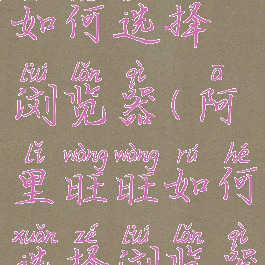 如何选择
liú lǎn qì ā
浏览器(阿
lǐ wàng wàng rú hé
里旺旺如何
xuǎn zé liú lǎn qì
选择浏览器